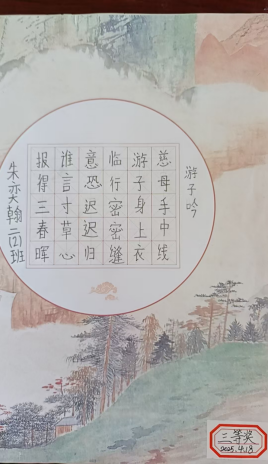 游子吟
慈母手中线
游子身上衣
临行密密缝
意恐迟迟归
谁言寸草心
报得三春晖
朱奕翰二(2)班
三等奖
2025.4.18